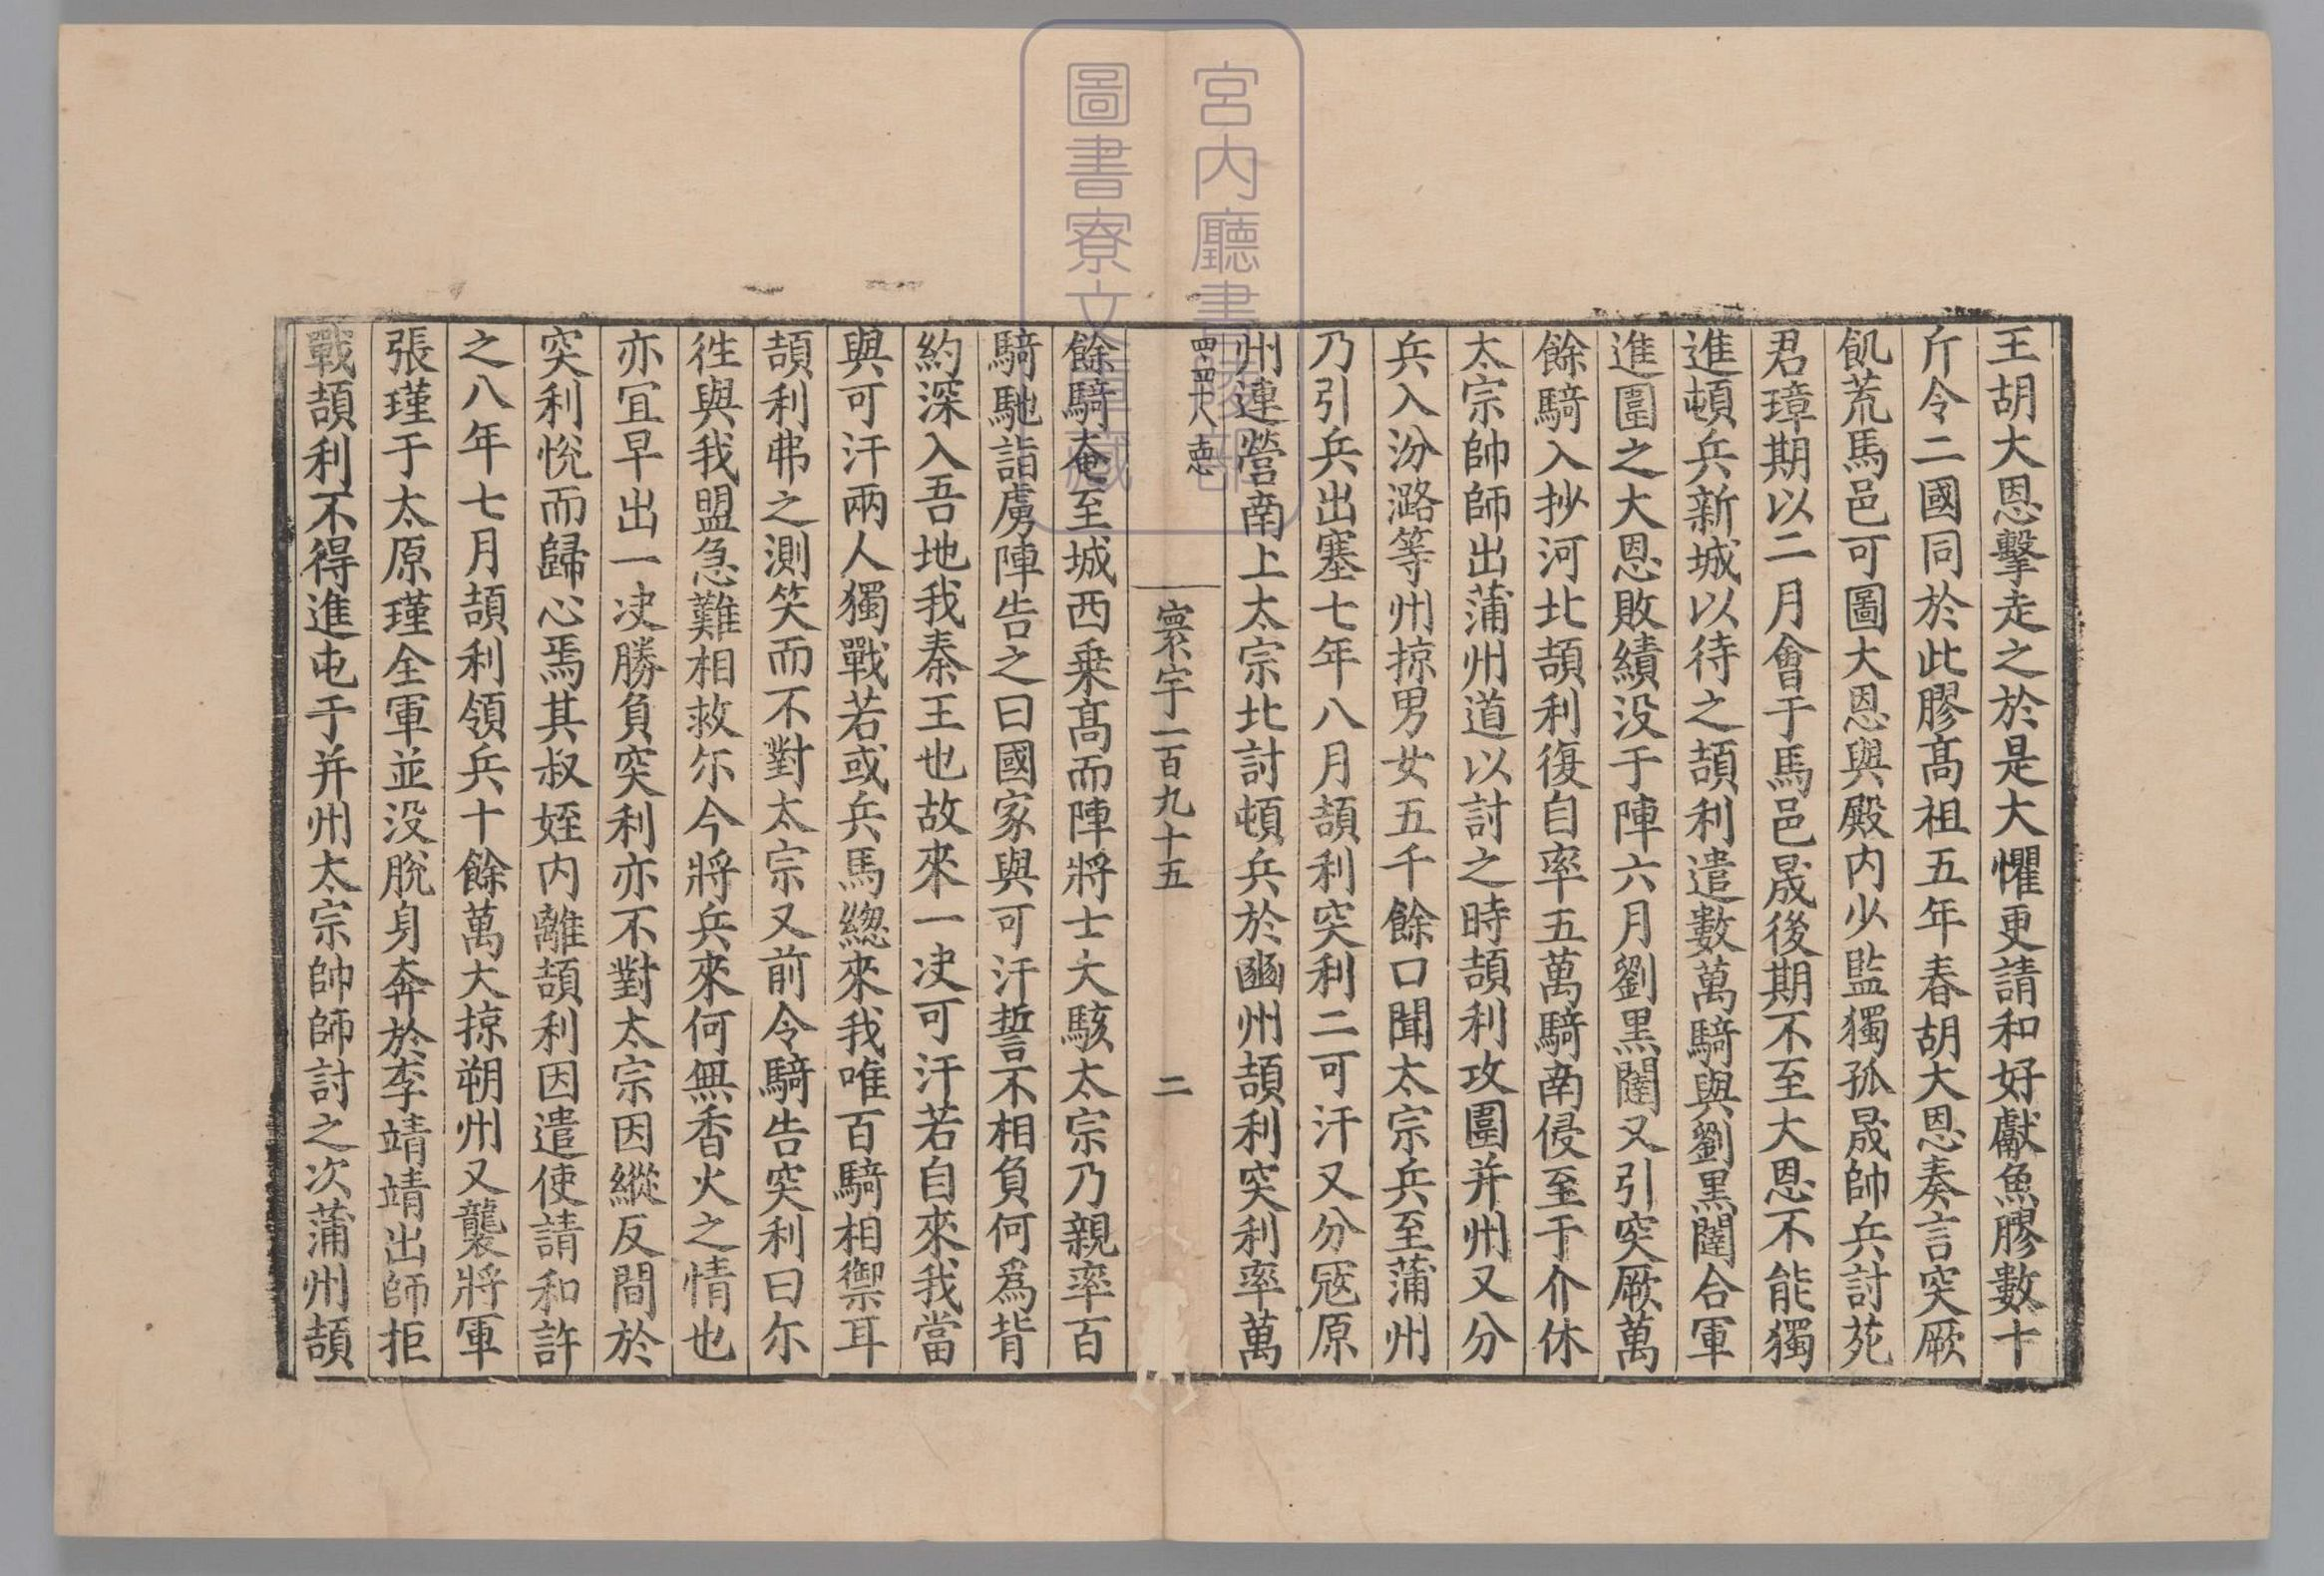 王胡大恩擊走之於是大懼更請和好獻魚膠數十
斤令二國同於此膠高祖五年春胡大恩奏言突厥
飢荒馬邑可圖大恩與殿内少監獨孤晟帥兵討苑
君璋期以二月會于馬邑晟後期不至大恩不能獨
進頓兵新城以待之頡利遣數萬騎與劉黒闥合軍
進圍之大恩敗績没于陣六月劉黒闥又引突厥萬
餘騎入抄河北頡利復自率五萬騎南侵至于介休
太宗帥師出蒲州道以討之時頡利攻圍并州又分
兵入汾潞等州掠男女五千餘口聞太宗兵至蒲州
乃引兵出塞七年八月頡利突利二可汗又分宼原
州連營南上太宗北討頓兵於豳州頡利突利率萬
寰宇一百九十五
二
餘騎奄至城西乗髙而陣將士大駭太宗乃親率百
騎馳詣虜陣告之曰國家與可汗誓不相負何爲背
約深入吾地我秦王也故來一决可汗若自來我當
與可汗兩人獨戰若或兵馬緫來我唯百騎相禦耳
頡利弗之測笑而不對太宗又前令騎告突利曰尓
徃與我盟急難相救尓今將兵來何無香火之情也
亦冝早出一决勝負突利亦不對太宗因縱反間於
突利悅而歸心焉其叔姪内離頡利因遣使請和許
之八年七月頡利領兵十餘萬大掠朔州又襲將軍
張瑾于太原瑾全軍並没脫身奔於李靖靖出師拒
戰頡利不得進屯于并州太宗帥師討之次蒲州頡
宮内廳書陵部
圖書寮文庫藏